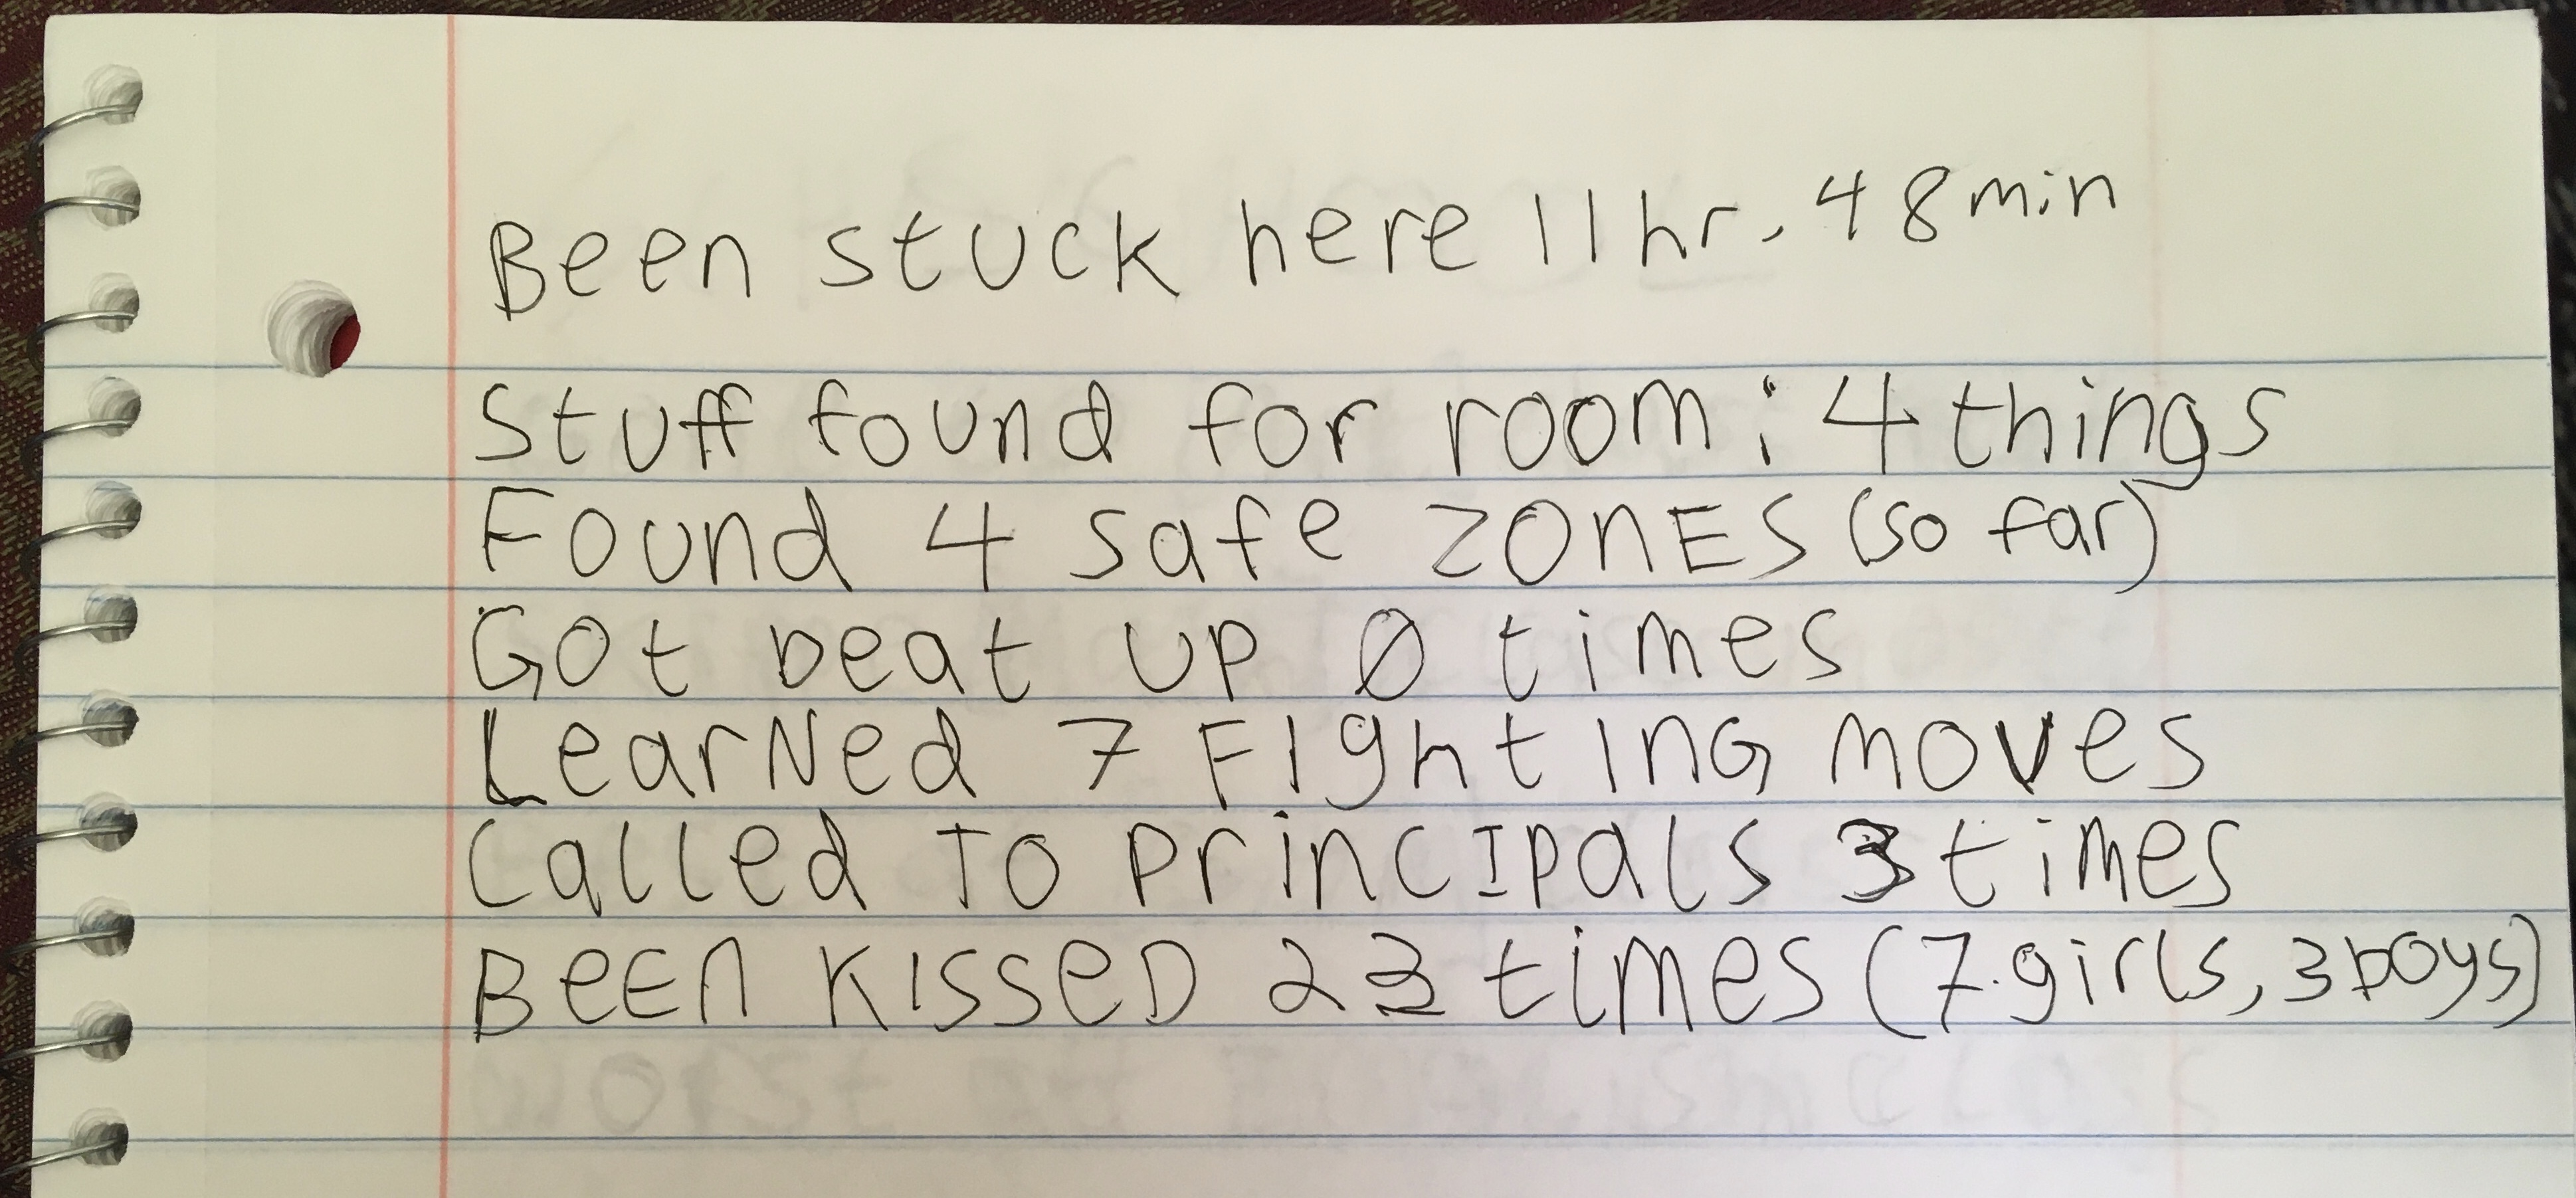 Been stuck here 11hr. 48min
Stuff found for room: 4 things
Found 4 safe zonES (so far)
Got beat up 0 times
LearNed 7 FIghtInG moves
Called To princIpals 3 times
BeEn KisseD times (7 girls, 3 boys)